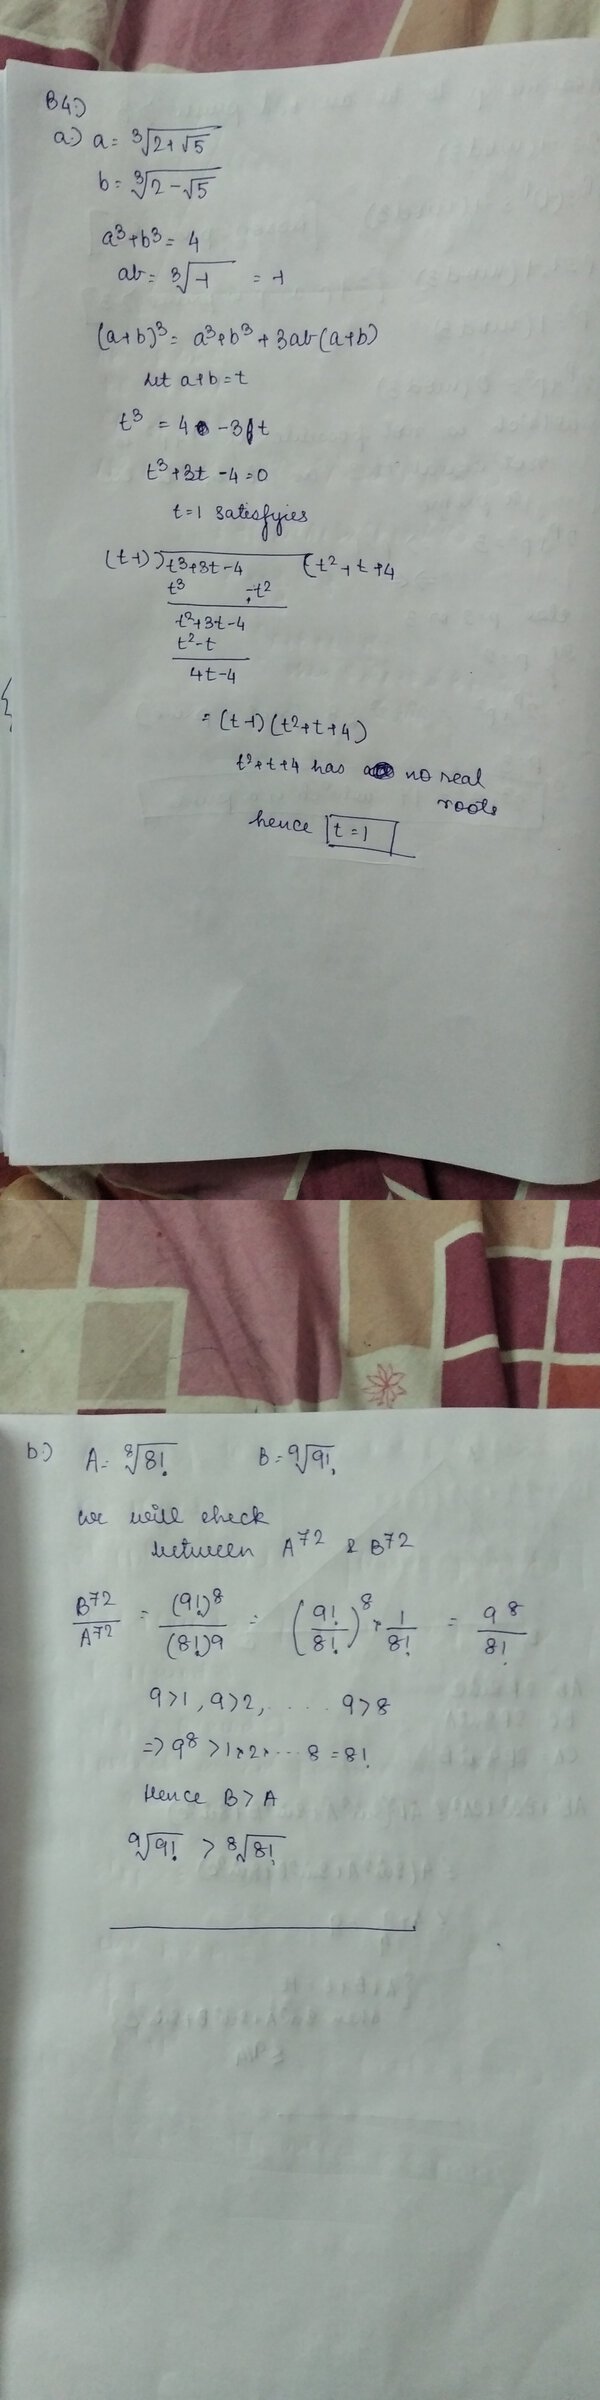 B4:)
a:) a = ∛(2+√5)
b = ∛(2-√5)
a³+b³ = 4
ab = ∛-1 = -1
(a+b)³ = a³+b³+3ab(a+b)
let a+b=t
t³ = 4 -3t
t³+3t-4=0
t=1 satisfyies
(t-1)) t³+3t-4 (t²+t+4
t³ -t²
t²+3t-4
t²-t
4t-4
= (t-1)(t²+t+4)
t²+t+4 has no real
roots
hence t=1
b:) A = ⁸√8! B = ⁹√9!
we will check
between A⁷² & B⁷²
B⁷²/A⁷² = (9!)⁸/(8!)⁹ = (9!/8!)⁸ × 1/8! = 9⁸/8!
9>1, 9>2, ..... 9>8
=> 9⁸ > 1×2×...8 = 8!
Hence B>A
⁹√9! > ⁸√8!